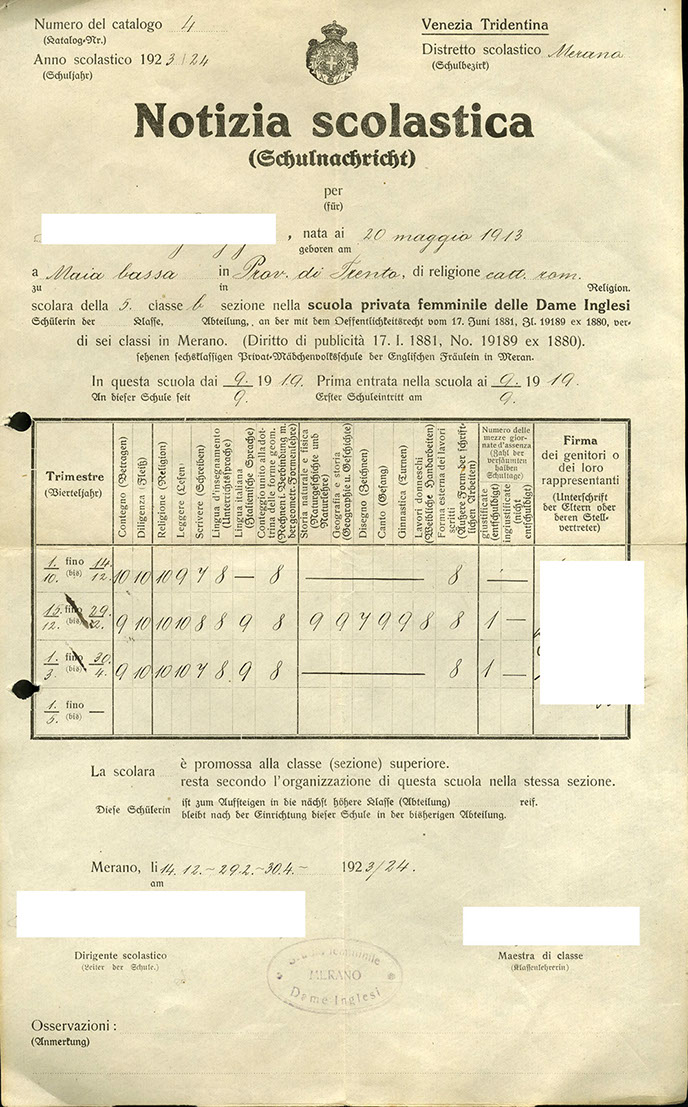 Numero del catalogo 4
(Katalog-Nr.)
Anno scolastico 1923/24
(Schuljahr)
Venezia Tridentina
Distretto scolastico Merano
(Schulbezirk)
Notizia scolastica
(Schulnachricht)
per
(für)
, nata ai 20 maggio 1913
geboren am
a Maia bassa in Prov. di Trento, di religione catt. rom.
zu in Religion.
scolara della 5. classe b sezione nella scuola privata femminile delle Dame Inglesi
Schülerin der Klasse, Abteilung, an der mit dem Oeffentlichkeitsrecht vom 17. Juni 1881, Zl. 19189 ex 1880, ver-
di sei classi in Merano. (Diritto di publicità 17. I. 1881, No. 19189 ex 1880).
sehenen sechsklassigen Privat-Mädchenvolksschule der Englischen Fräulein in Meran.
In questa scuola dai 9. 1919. Prima entrata nella scuola ai 9. 1919.
An dieser Schule seit 9. Erster Schuleintritt am 9.
Trimestre
(Vierteljahr)
Contegno (Betragen)
Diligenza (Fleiß)
Religione (Religion)
Leggere (Lesen)
Scrivere (Schreiben)
Lingua d'insegnamento
(Unterrichtssprache)
Lingua italiana
(Italienische Sprache)
Conteggio unito alla dot-
trina delle forme geom.
(Rechnen i. Verbindung m.
der geometr. Formenlehre)
Storia naturale e fisica
(Naturgeschichte und
Naturlehre)
Geografia e storia
(Geographie u. Geschichte)
Disegno (Zeichnen)
Canto (Gesang)
Ginnastica (Turnen)
Lavori donneschi
(Weibliche Handarbeiten)
Forma esterna dei lavori
scritti
(Äußere Form der schrift-
lichen Arbeiten)
Numero delle
mezze gior-
nate d'assenza
(Zahl der
versäumten
halben
Schultage)
giustificate
(entschuldigt)
ingiustificate
(nicht
entschuldigt)
Firma
dei genitori o
dei loro
rappresentanti
(Unterschrift
der Eltern oder
deren Stell-
vertreter)
1. fino 14.
10. (bis) 12. 10 10 10 9 7 8 — 8 — 8 — —
15. fino 29.
12. (bis) 2. 9 10 10 10 8 8 9 8 9 9 7 9 9 8 8 1 —
1. fino 30.
3. (bis) 4. 9 10 10 10 7 8 9 8 — 8 1 —
1. fino —
5. (bis)
La scolara è promossa alla classe (sezione) superiore.
resta secondo l'organizzazione di questa scuola nella stessa sezione.
Diese Schülerin ist zum Aufsteigen in die nächst höhere Klasse (Abteilung) reif.
bleibt nach der Einrichtung dieser Schule in der bisherigen Abteilung.
Merano, li 14.12.-29.2.-30.4.- 1923/24.
am
Dirigente scolastico
(Leiter der Schule.)
Maestra di classe
(Klassenlehrerin)
femminile
MERANO
Dame Inglesi
Osservazioni:
(Anmerkung)